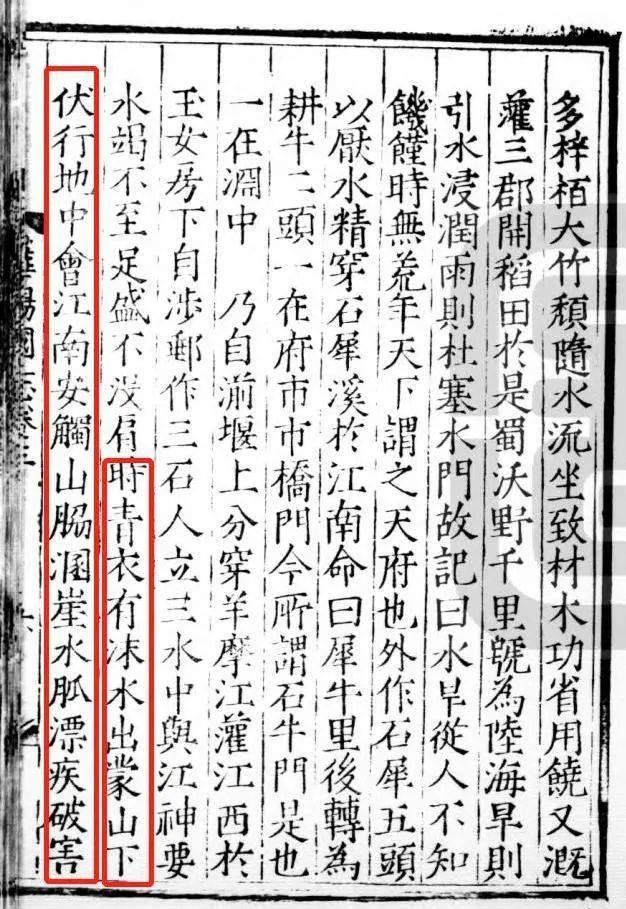 多梓栢大竹頹隨水流坐致材木功省用饒又溉
灌三郡開稻田於是蜀沃野千里號為陸海旱則
引水浸潤雨則杜塞水門故記曰水旱從人不知
饑饉時無荒年天下謂之天府也外作石犀五頭
以厭水精穿石犀溪於江南命曰犀牛里後轉為
耕牛二頭一在府市市橋門今所謂石牛門是也
一在淵中　乃自湔堰上分穿羊摩江灌江西於
玉女房下自涉郵作三石人立三水中與江神要
水竭不至足盛不没肩時青衣有沫水出蒙山下
伏行地中會江南安觸山脇溷崖水胍漂疾破害
華陽國志卷三
六